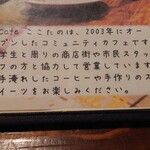 Cafe ここたのは、2003年にオー
プンしたコミュニティカフェです
学生と周りの商店街や市民スタッ
フの方と協力して営業しています
手淹れしたコーヒーや手作りのス
イーツをお楽しみください。